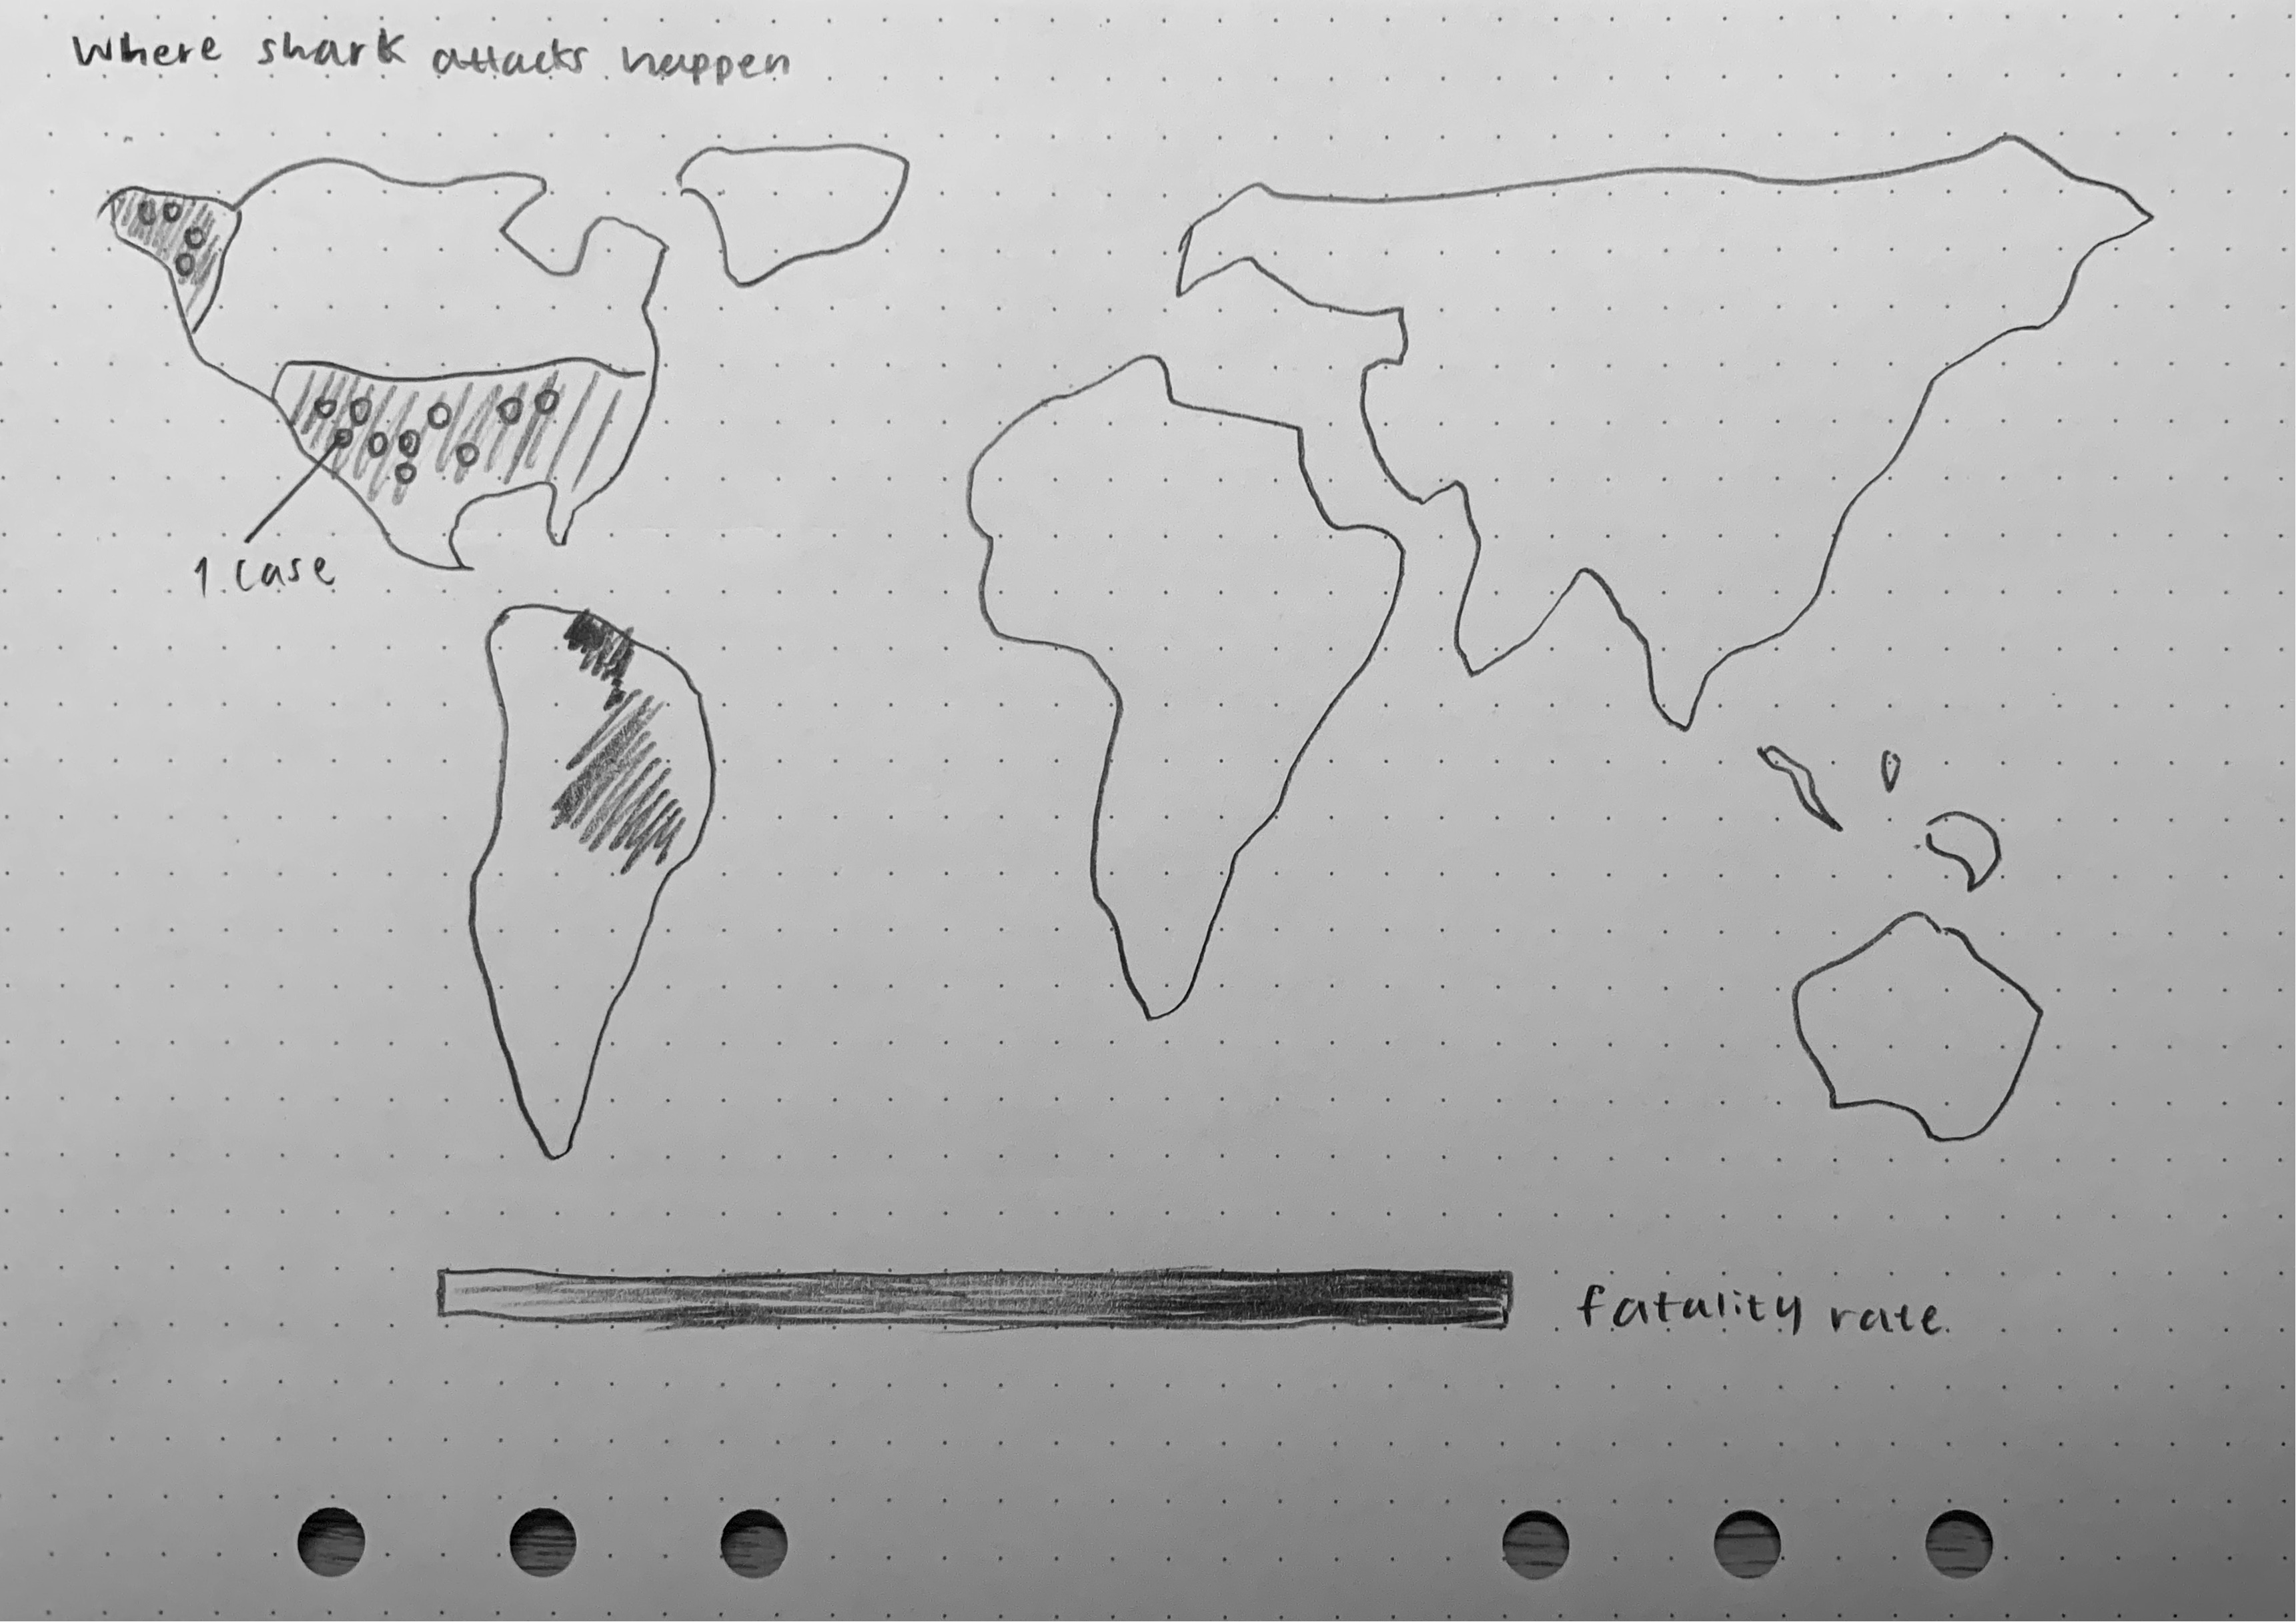 Where shark attacks happen
1 case
fatality rate